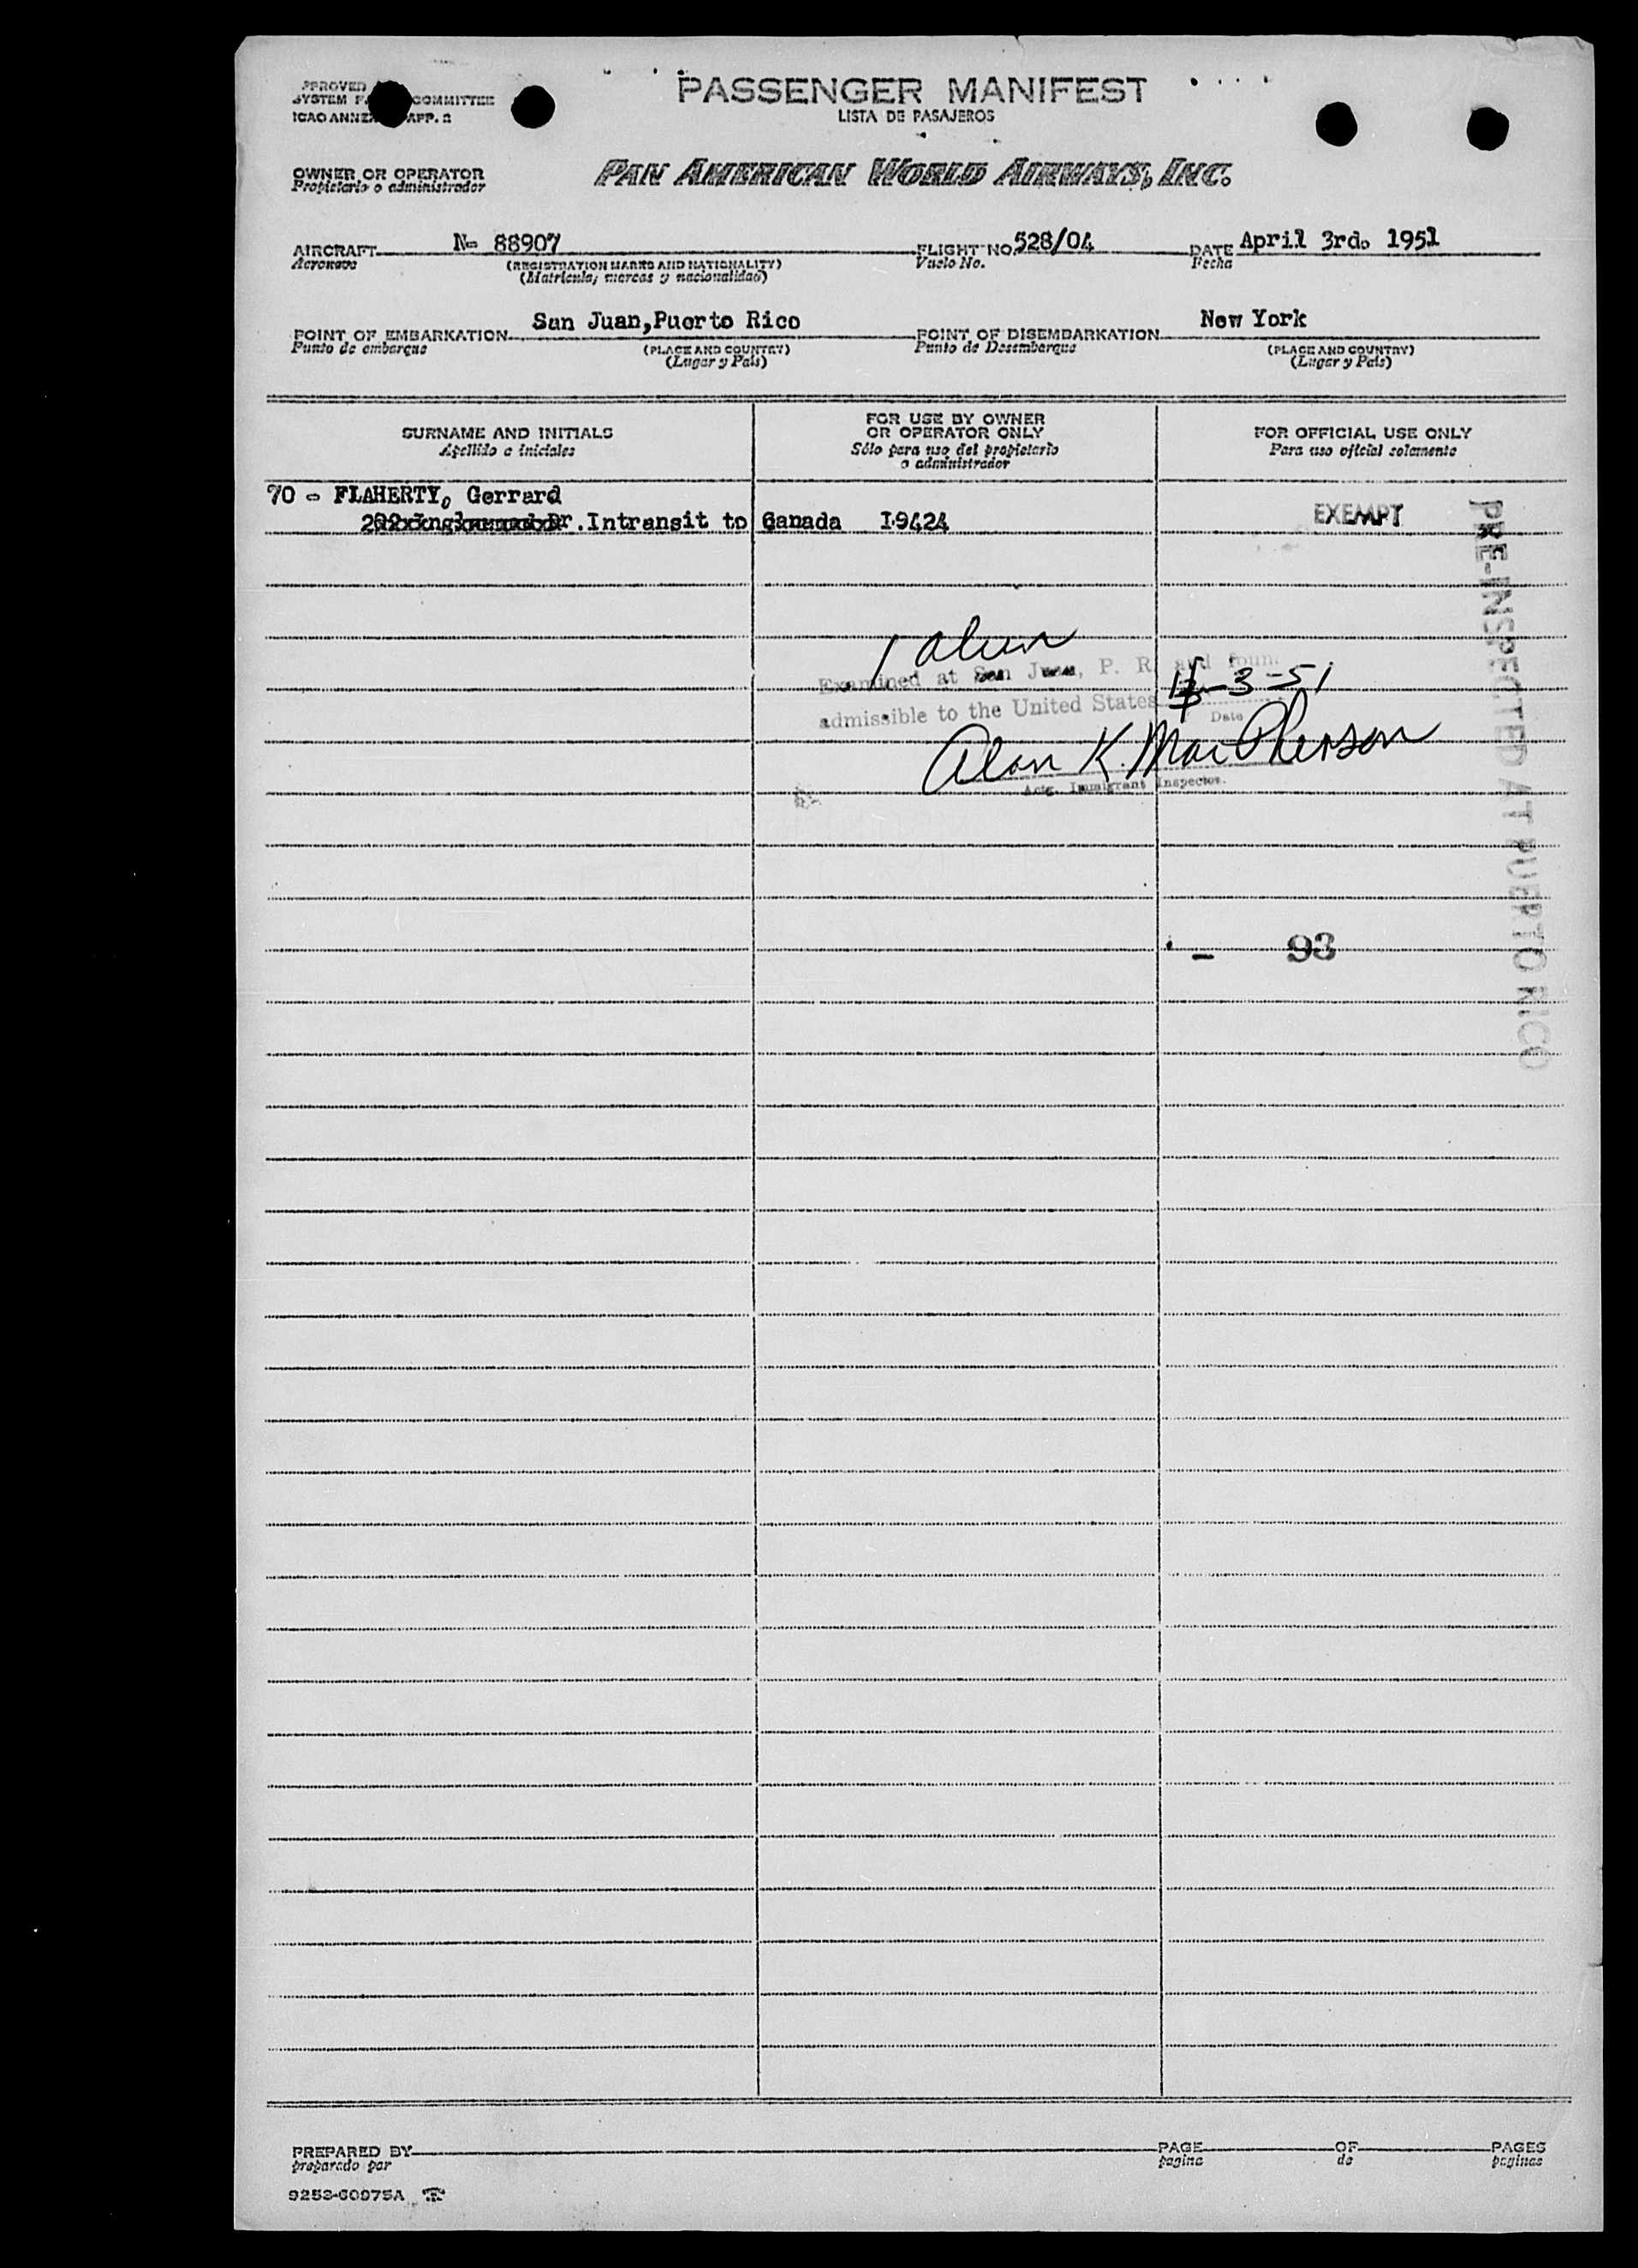 PASSENGER MANIFEST
LISTA DE PASAJEROS
COMMITTEE
ICAO ANNEX APP. 2
OWNER OR OPERATOR
Propietario o administrador
PAN AMERICAN WORLD AIRWAYS, INC.
AIRCRAFT N- 88907 FLIGHT NO. 528/04 DATE April 3rd. 1951
Aeronave (REGISTRATION MARKS AND NATIONALITY) Vuelo No. Fecha
(Matricula, marcas y nacionalidad)
POINT OF EMBARKATION San Juan,Puerto Rico POINT OF DISEMBARKATION New York
Punto de embarque (PLACE AND COUNTRY) Punto de Desembarque (PLACE AND COUNTRY)
(Lugar y País) (Lugar y País)
SURNAME AND INITIALS
Apellido e iniciales
FOR USE BY OWNER
OR OPERATOR ONLY
Sólo para uso del propietario
o administrador
FOR OFFICIAL USE ONLY
Para uso oficial solamente
70 - FLAHERTY, Gerrard
Dr.Intransit to Canada I9424 EXEMPT
PRE-INSPECTED AT PUERTO RICO
1 alien
Examined at San Juan, P. R. and found
admissible to the United States 4-3-51
Date
Alan K. MacPherson
Actg. Immigrant Inspector.
- 93
PREPARED BY PAGE OF PAGES
preparado por pagina de paginas
9253-60975A